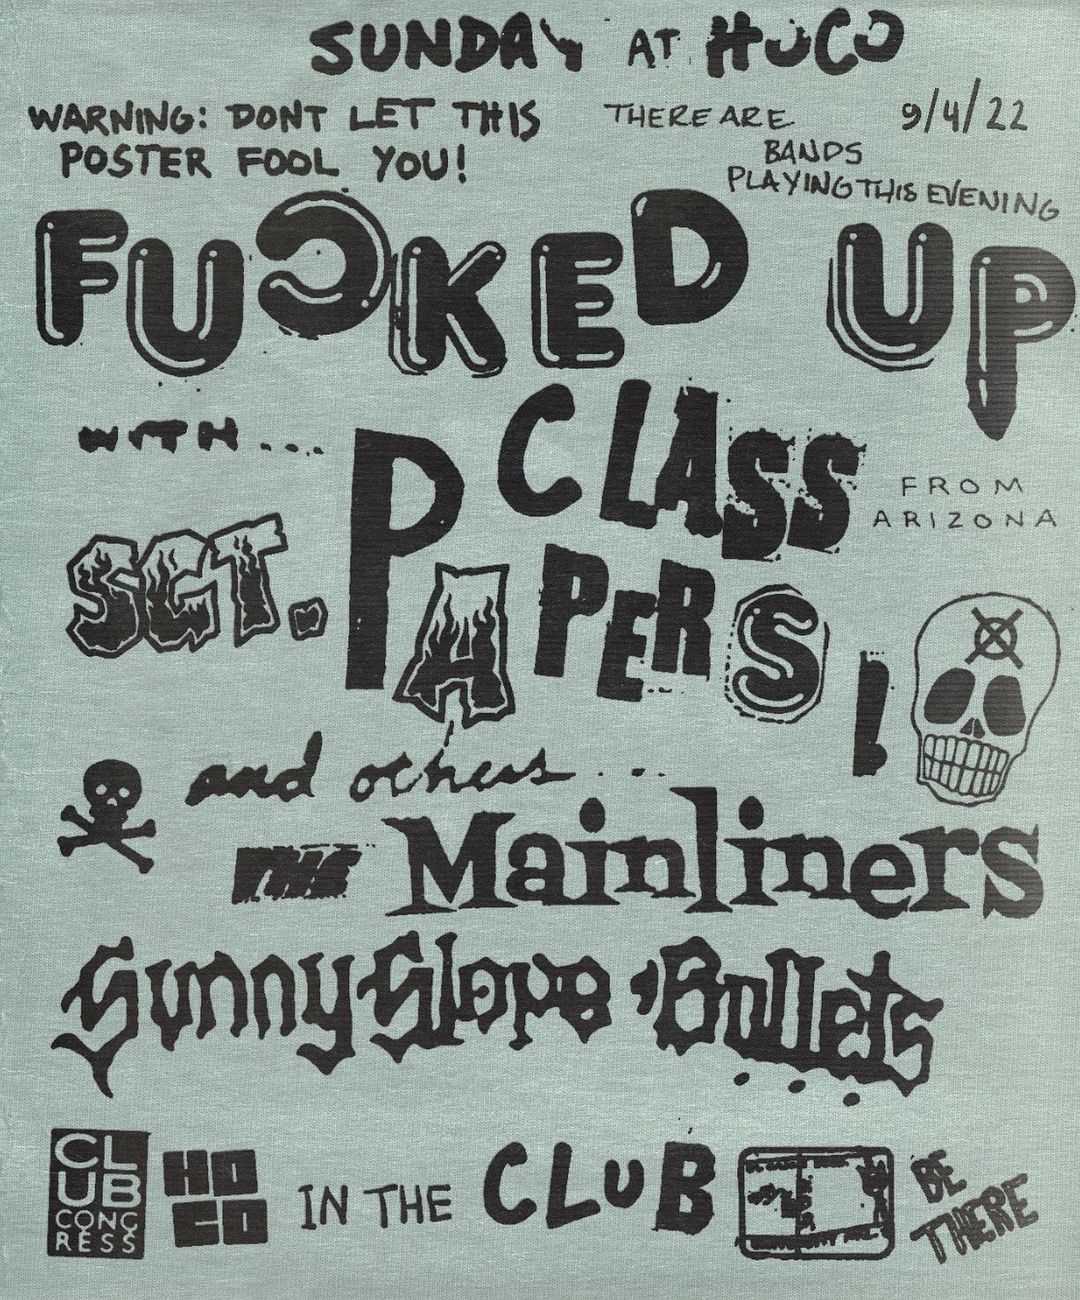 SUNDAY AT HOCO
WARNING: DONT LET THIS
POSTER FOOL YOU!
THERE ARE
BANDS
PLAYING THIS EVENING
9/4/22
FUCKED UP
WITH...
CLASS
FROM
ARIZONA
SGT. PAPERS!
and others...
THE Mainliners
Sunny Slope Bullets...
CLUB
CONG
RESS
HO
CO
IN THE CLUB
BE
THERE